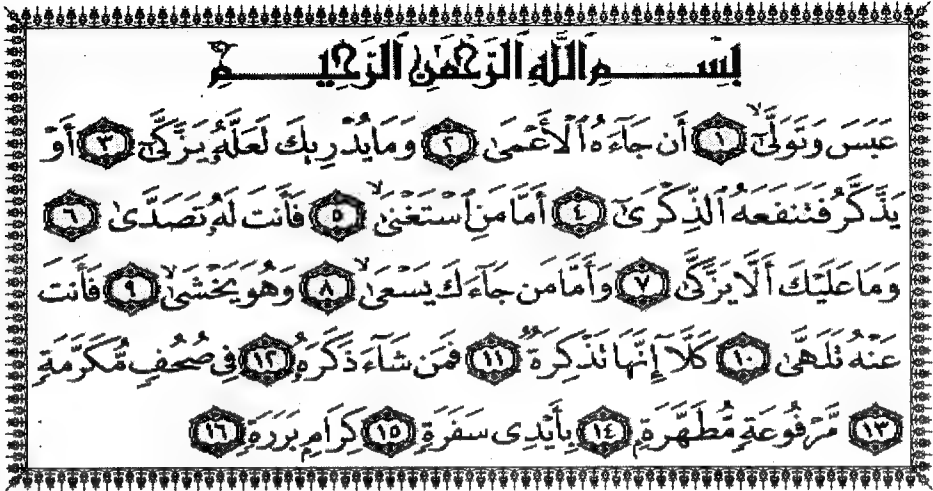 بِسْمِ ٱللَّهِ ٱلرَّحْمَٰنِ ٱلرَّحِيمِ
عَبَسَ وَتَوَلَّىٰٓ ١ أَن جَآءَهُ ٱلْأَعْمَىٰ ٢ وَمَا يُدْرِيكَ لَعَلَّهُۥ يَزَّكَّىٰٓ ٣ أَوْ
يَذَّكَّرُ فَتَنفَعَهُ ٱلذِّكْرَىٰٓ ٤ أَمَّا مَنِ ٱسْتَغْنَىٰ ٥ فَأَنتَ لَهُۥ تَصَدَّىٰ ٦
وَمَا عَلَيْكَ أَلَّا يَزَّكَّىٰ ٧ وَأَمَّا مَن جَآءَكَ يَسْعَىٰ ٨ وَهُوَ يَخْشَىٰ ٩ فَأَنتَ
عَنْهُ تَلَهَّىٰ ١٠ كَلَّآ إِنَّهَا تَذْكِرَةٌ ١١ فَمَن شَآءَ ذَكَرَهُۥ ١٢ فِى صُحُفٍ مُّكَرَّمَةٍ
١٣ مَّرْفُوعَةٍ مُّطَهَّرَةٍۭ ١٤ بِأَيْدِى سَفَرَةٍ ١٥ كِرَامٍۭ بَرَرَةٍ ١٦